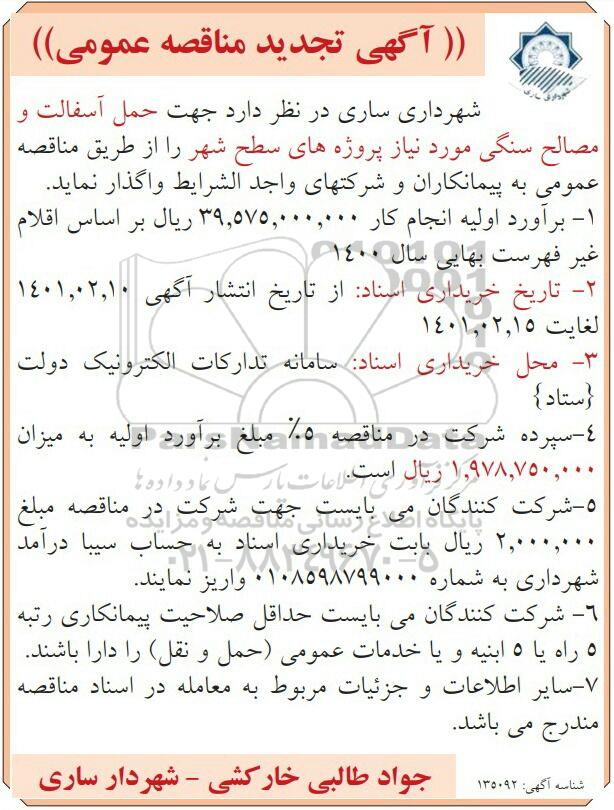 (( آگهی تجدید مناقصه عمومی))
شهرداری ساری
شهرداری ساری در نظر دارد جهت حمل آسفالت و
مصالح سنگی مورد نیاز پروژه های سطح شهر را از طریق مناقصه
عمومی به پیمانکاران و شرکتهای واجد الشرایط واگذار نماید.
۱- برآورد اولیه انجام کار ۳۹,۵۷۵,۰۰۰,۰۰۰ ریال بر اساس اقلام
غیر فهرست بهایی سال ۱۴۰۰
۲- تاریخ خریداری اسناد: از تاریخ انتشار آگهی ۱۴۰۱,۰۲,۱۰
لغایت ۱۴۰۱,۰۲,۱۵
۳- محل خریداری اسناد: سامانه تدارکات الکترونیک دولت
{ستاد}
۴-سپرده شرکت در مناقصه ۵٪ مبلغ برآورد اولیه به میزان
۱,۹۷۸,۷۵۰,۰۰۰ ریال است.
۵-شرکت کنندگان می بایست جهت شرکت در مناقصه مبلغ
۲,۰۰۰,۰۰۰ ریال بابت خریداری اسناد به حساب سیبا درآمد
شهرداری به شماره ۰۱۰۸۵۹۸۷۹۹۰۰۰ واریز نمایند.
۶- شرکت کنندگان می بایست حداقل صلاحیت پیمانکاری رتبه
۵ راه یا ۵ ابنیه و یا خدمات عمومی (حمل و نقل) را دارا باشند.
۷-سایر اطلاعات و جزئیات مربوط به معامله در اسناد مناقصه
مندرج می باشد.
جواد طالبی خارکشی - شهردار ساری
شناسه آگهی: ۱۳۵۰۹۲
ParsNamadData
مرکز فرآوری اطلاعات پارس نماد داده ها
پایگاه اطلاع رسانی مناقصه و مزایده
۰۲۱-۸۸۳۴۹۶۷۰-۵